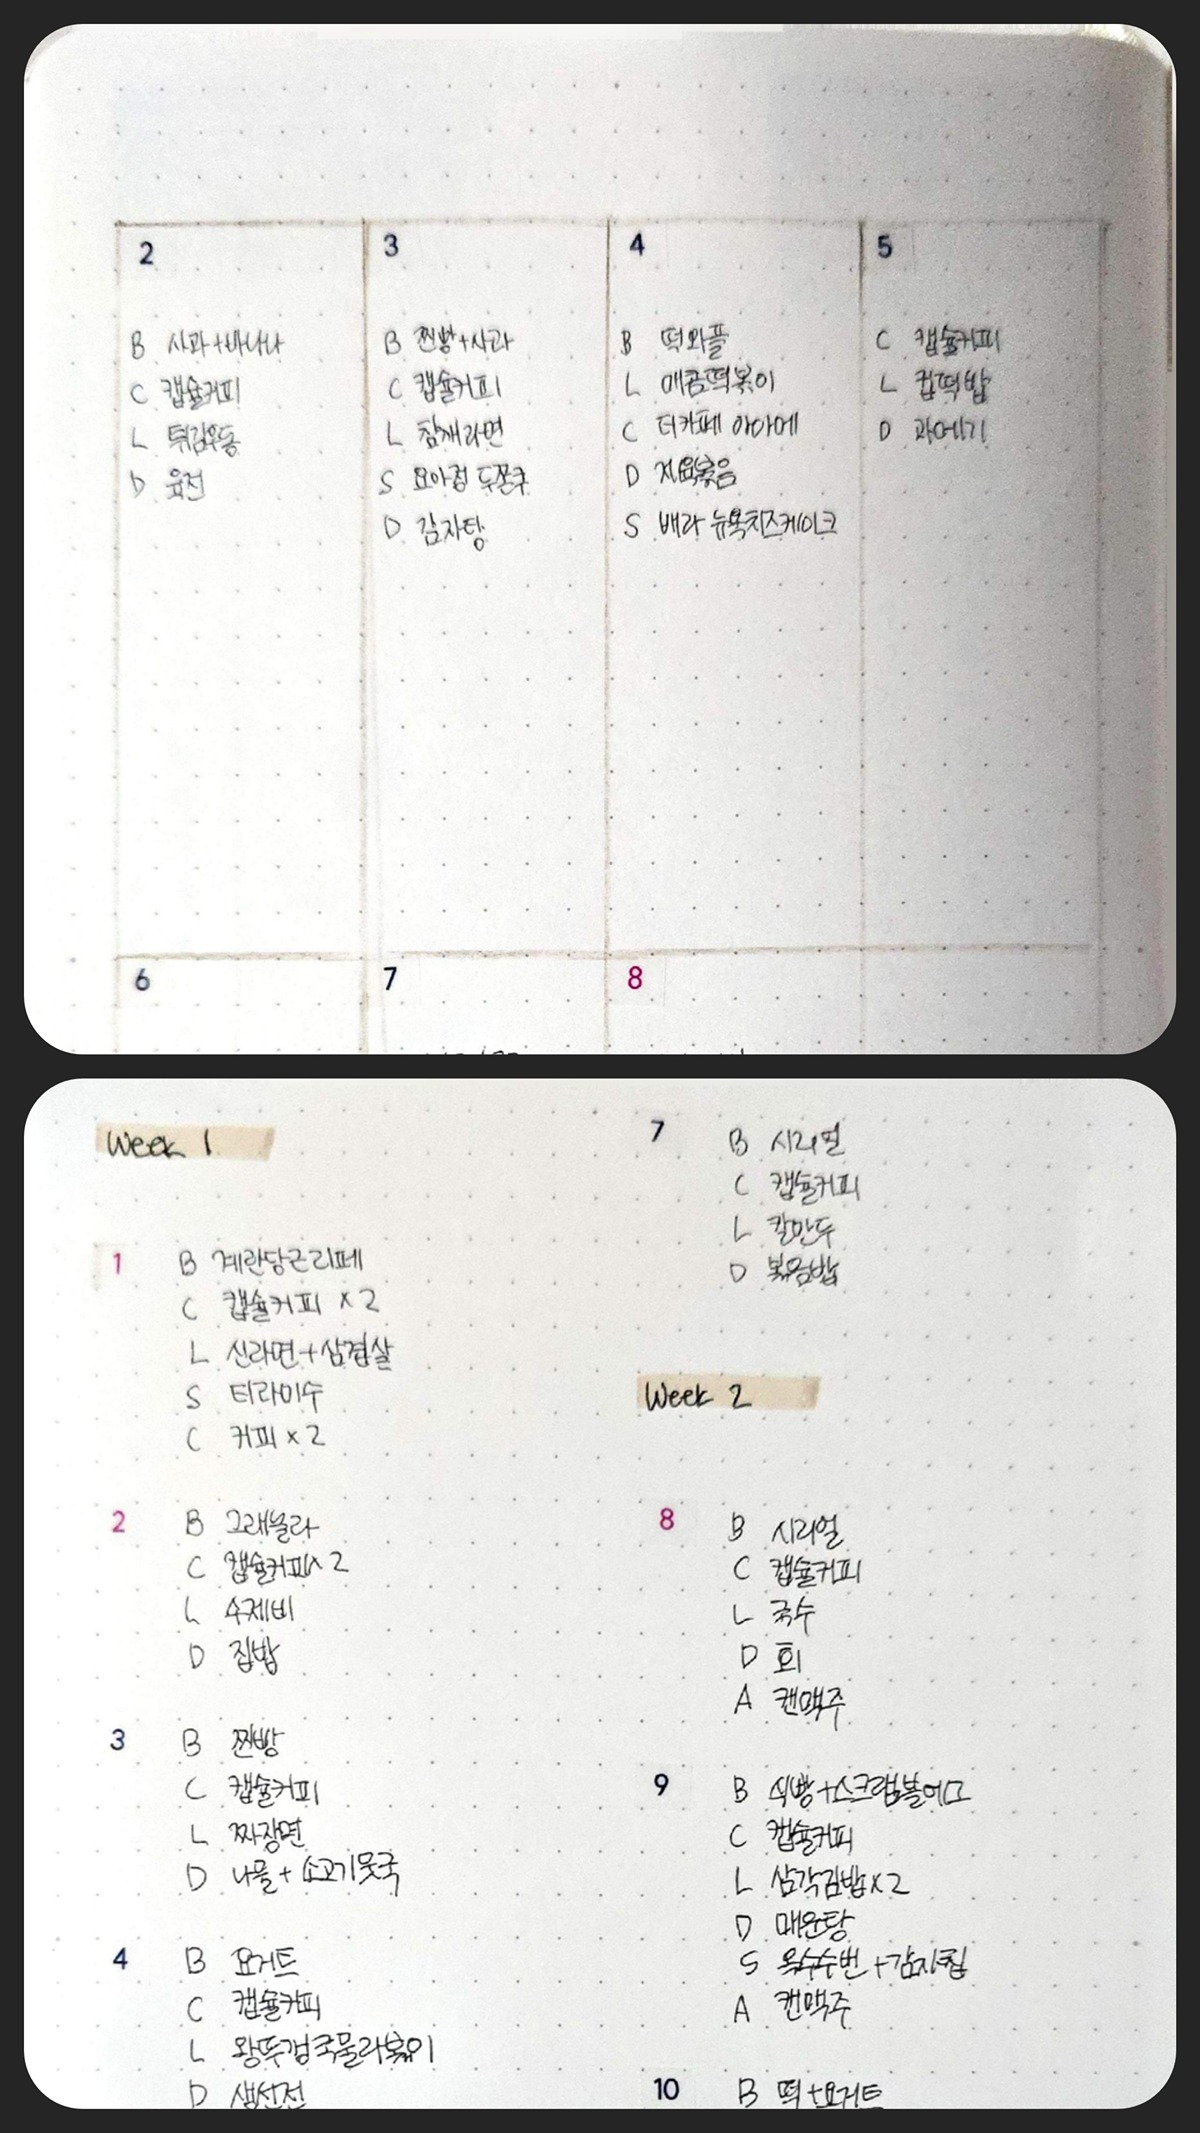 2
B 사과+바나나
C 캡슐커피
L 튀김우동
D 육전
3
B 찐빵+사과
C 캡슐커피
L 참깨라면
S 요아정 두쫀쿠
D 감자탕
4
B 떡와플
L 매콤떡볶이
C 더카페 아아메
D 제육볶음
S 배라 뉴욕치즈케이크
5
C 캡슐커피
L 컵떡밥
D 과메기
6
7
8
Week 1
1
B 계란당근라페
C 캡슐커피 x 2
L 신라면+삼겹살
S 티라미수
C 커피 x 2
2
B 그래놀라
C 캡슐커피x 2
L 수제비
D 집밥
3
B 찐빵
C 캡슐커피
L 짜장면
D 나물+소고기뭇국
4
B 요거트
C 캡슐커피
L 왕뚜껑국물라볶이
D 생선전
7
B 시리얼
C 캡슐커피
L 칼만두
D 볶음밥
Week 2
8
B 시리얼
C 캡슐커피
L 국수
D 회
A 캔맥주
9
B 식빵+스크램블에그
C 캡슐커피
L 삼각김밥x2
D 매운탕
S 옥수수번+감자칩
A 캔맥주
10
B 떡+요거트